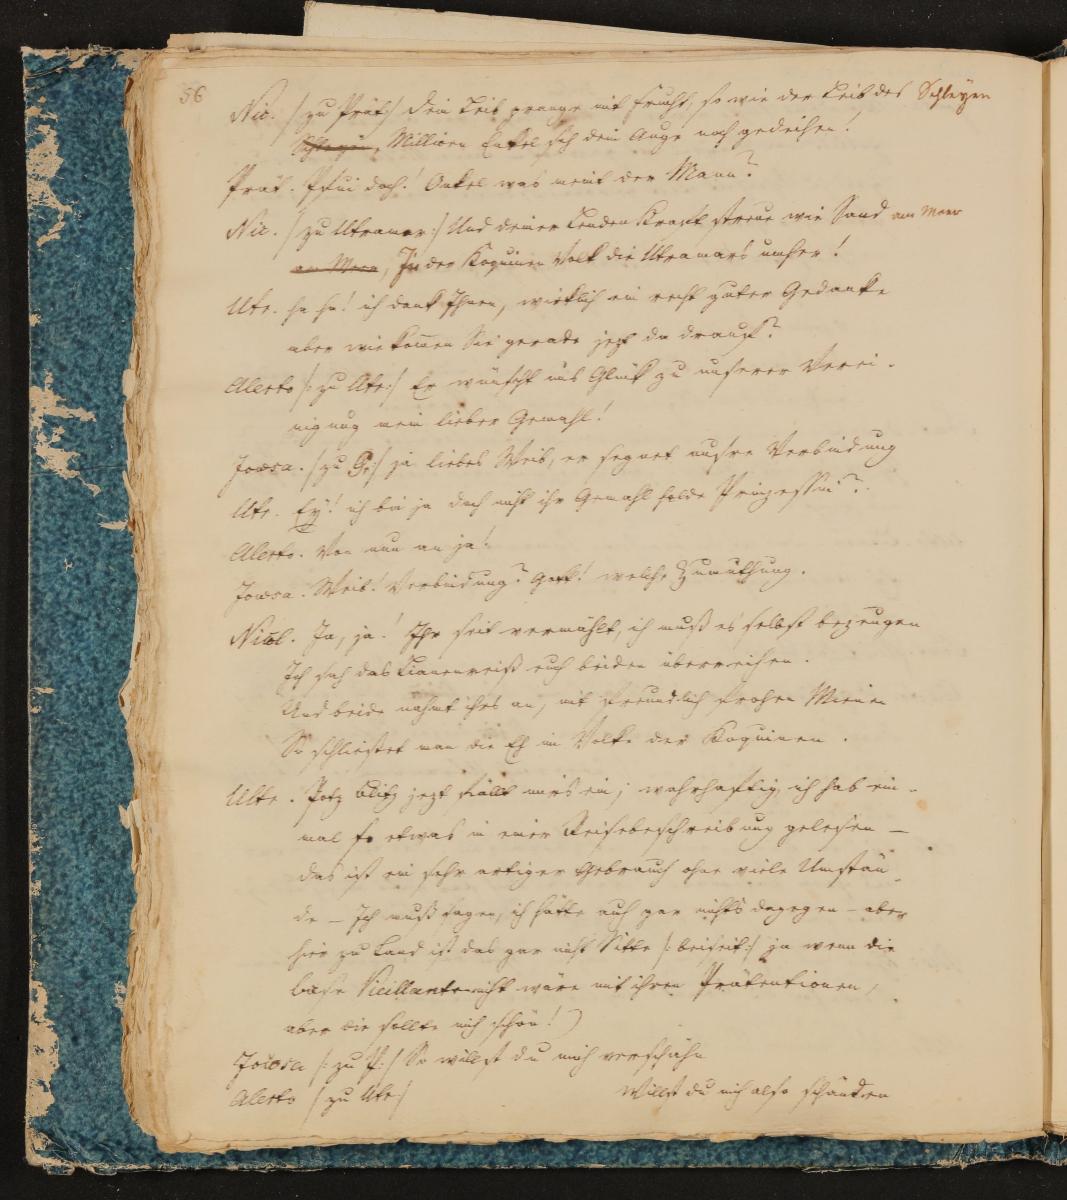 56
Nic. /: zu Prät:/ Dein Leib prange mit Frucht, so wie der Leib des Schleyen
Schleyen, Millionen Enkel seh dein Auge noch gedeihen!
Prät. Pfui doch! Onkel was meint der Mann?
Nic. /: zu Utramar:/ Und deiner Lenden Kraft streue wie Sand am Meer
am Meer, In der Koquinen Volk die Utramars umher!
Utr. ha ha! ich dank Ihnen, wirklich ein recht guter Gedanke
aber wie kommen Sie gerade jezt da drauf?
Alerto /: zu Utr:/ Er wünscht uns Glück zu unserer Verei-
nigung mein lieber Gemahl!
Jowsa. /: zu P:/ ja liebes Weib, er segnet unsre Verbindung
Utr. Ey! ich bin ja doch nicht ihr Gemahl holde Prinzessin?
Alerto. Von nun an ja!
Jowsa. Weib! Verbindung? Gott! welche Zumuthung.
Nicol. Ja, ja! Ihr seit vermählt, ich muß es selbst bezeugen
Ich sah das Lianenreiß euch beiden überreichen.
Und beide nahmt ihrs an, mit freundlich frohen Mienen
So schliestet man die Eh im Volke der Koquinen.
Utr. Potz Blitz jezt fällt mirs ein, wahrhaftig, ich hab ein-
mal so etwas in einer Reisebeschreibung gelesen —
das ist ein sehr artiger Gebrauch ohne viele Umstän-
de — Ich muß sagen, ich hätte auch gar nichts dagegen — aber
hier zu Land ist das gar nicht Sitte /: beiseit:/ ja wenn die
Base Vieillante nicht wäre mit ihren Prätentionen,
aber die sollte mich schön!)
Jowsa /: zu P:/ So willst du mich verschmähn
Alerto /: zu Utr:/ Willst du mich also schänden